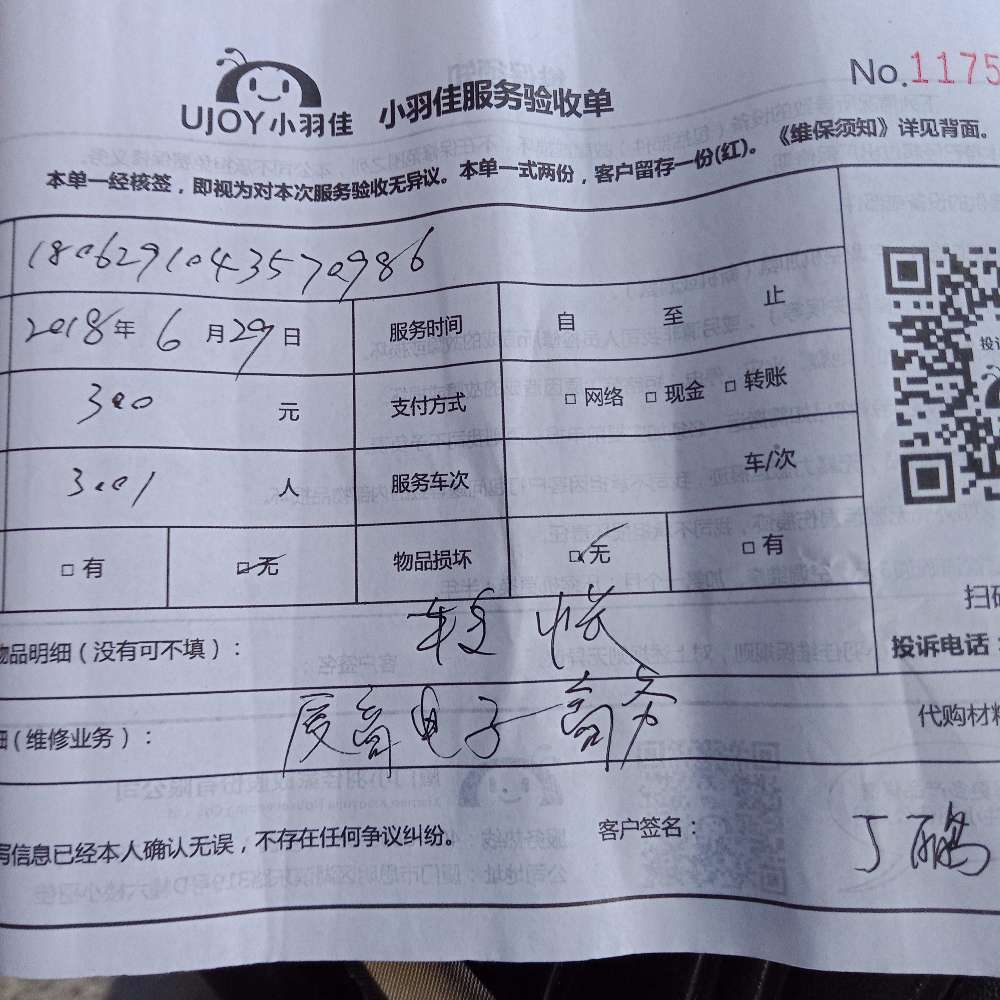 UJOY小羽佳 小羽佳服务验收单 No.1175
本单一经核签，即视为对本次服务验收无异议。本单一式两份，客户留存一份(红)。《维保须知》详见背面。
1806291043570986
2018年6月29日 服务时间 自 至 止
300 元 支付方式 □ 网络 □ 现金 □ 转账
3001 人 服务车次 车/次
□ 有 ☑ 无 物品损坏 ☑ 无 □ 有
扫码
物品明细（没有可不填）： 转账 投诉电话：
细（维修业务）： 厦商电子商务 代购材料
写信息已经本人确认无误，不存在任何争议纠纷。 客户签名： 丁鹏